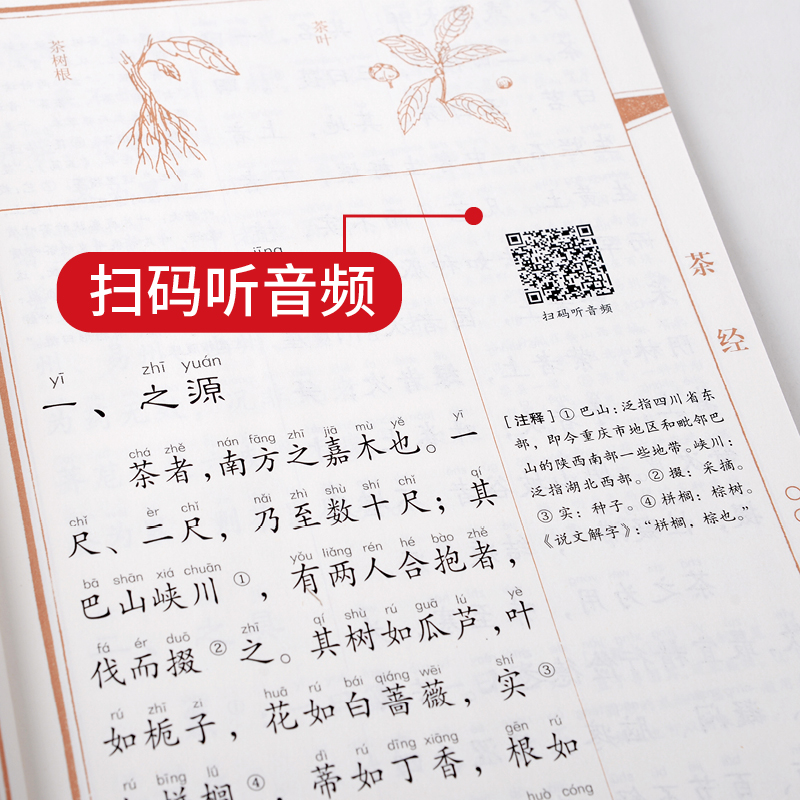 茶树根
茶叶
jīng
扫码听音频
扫码听音频
茶经
yī zhī yuán
一、之源
chá zhě nán fāng zhī jiā mù yě yī
茶者，南方之嘉木也。一
chǐ èr chǐ nǎi zhì shù shí chǐ qí
尺、二尺，乃至数十尺；其
bā shān xiá chuān yǒu liǎng rén hé bào zhě
巴山峡川①，有两人合抱者，
fá ér duō zhī qí shù rú guā lú yè
伐而掇②之。其树如瓜芦，叶
rú zhī zi huā rú bái qiáng wēi shí
如栀子，花如白蔷薇，实③
rú bīng lǘ dì rú dīng xiāng gēn rú
如栟榈④，蒂如丁香，根如
huò cóng
[注释]①巴山：泛指四川省东
部，即今重庆市地区和毗邻巴
山的陕西南部一些地带。峡川：
泛指湖北西部。②掇：采摘。
③实：种子。④栟榈：棕树。
《说文解字》：“栟榈，棕也。”